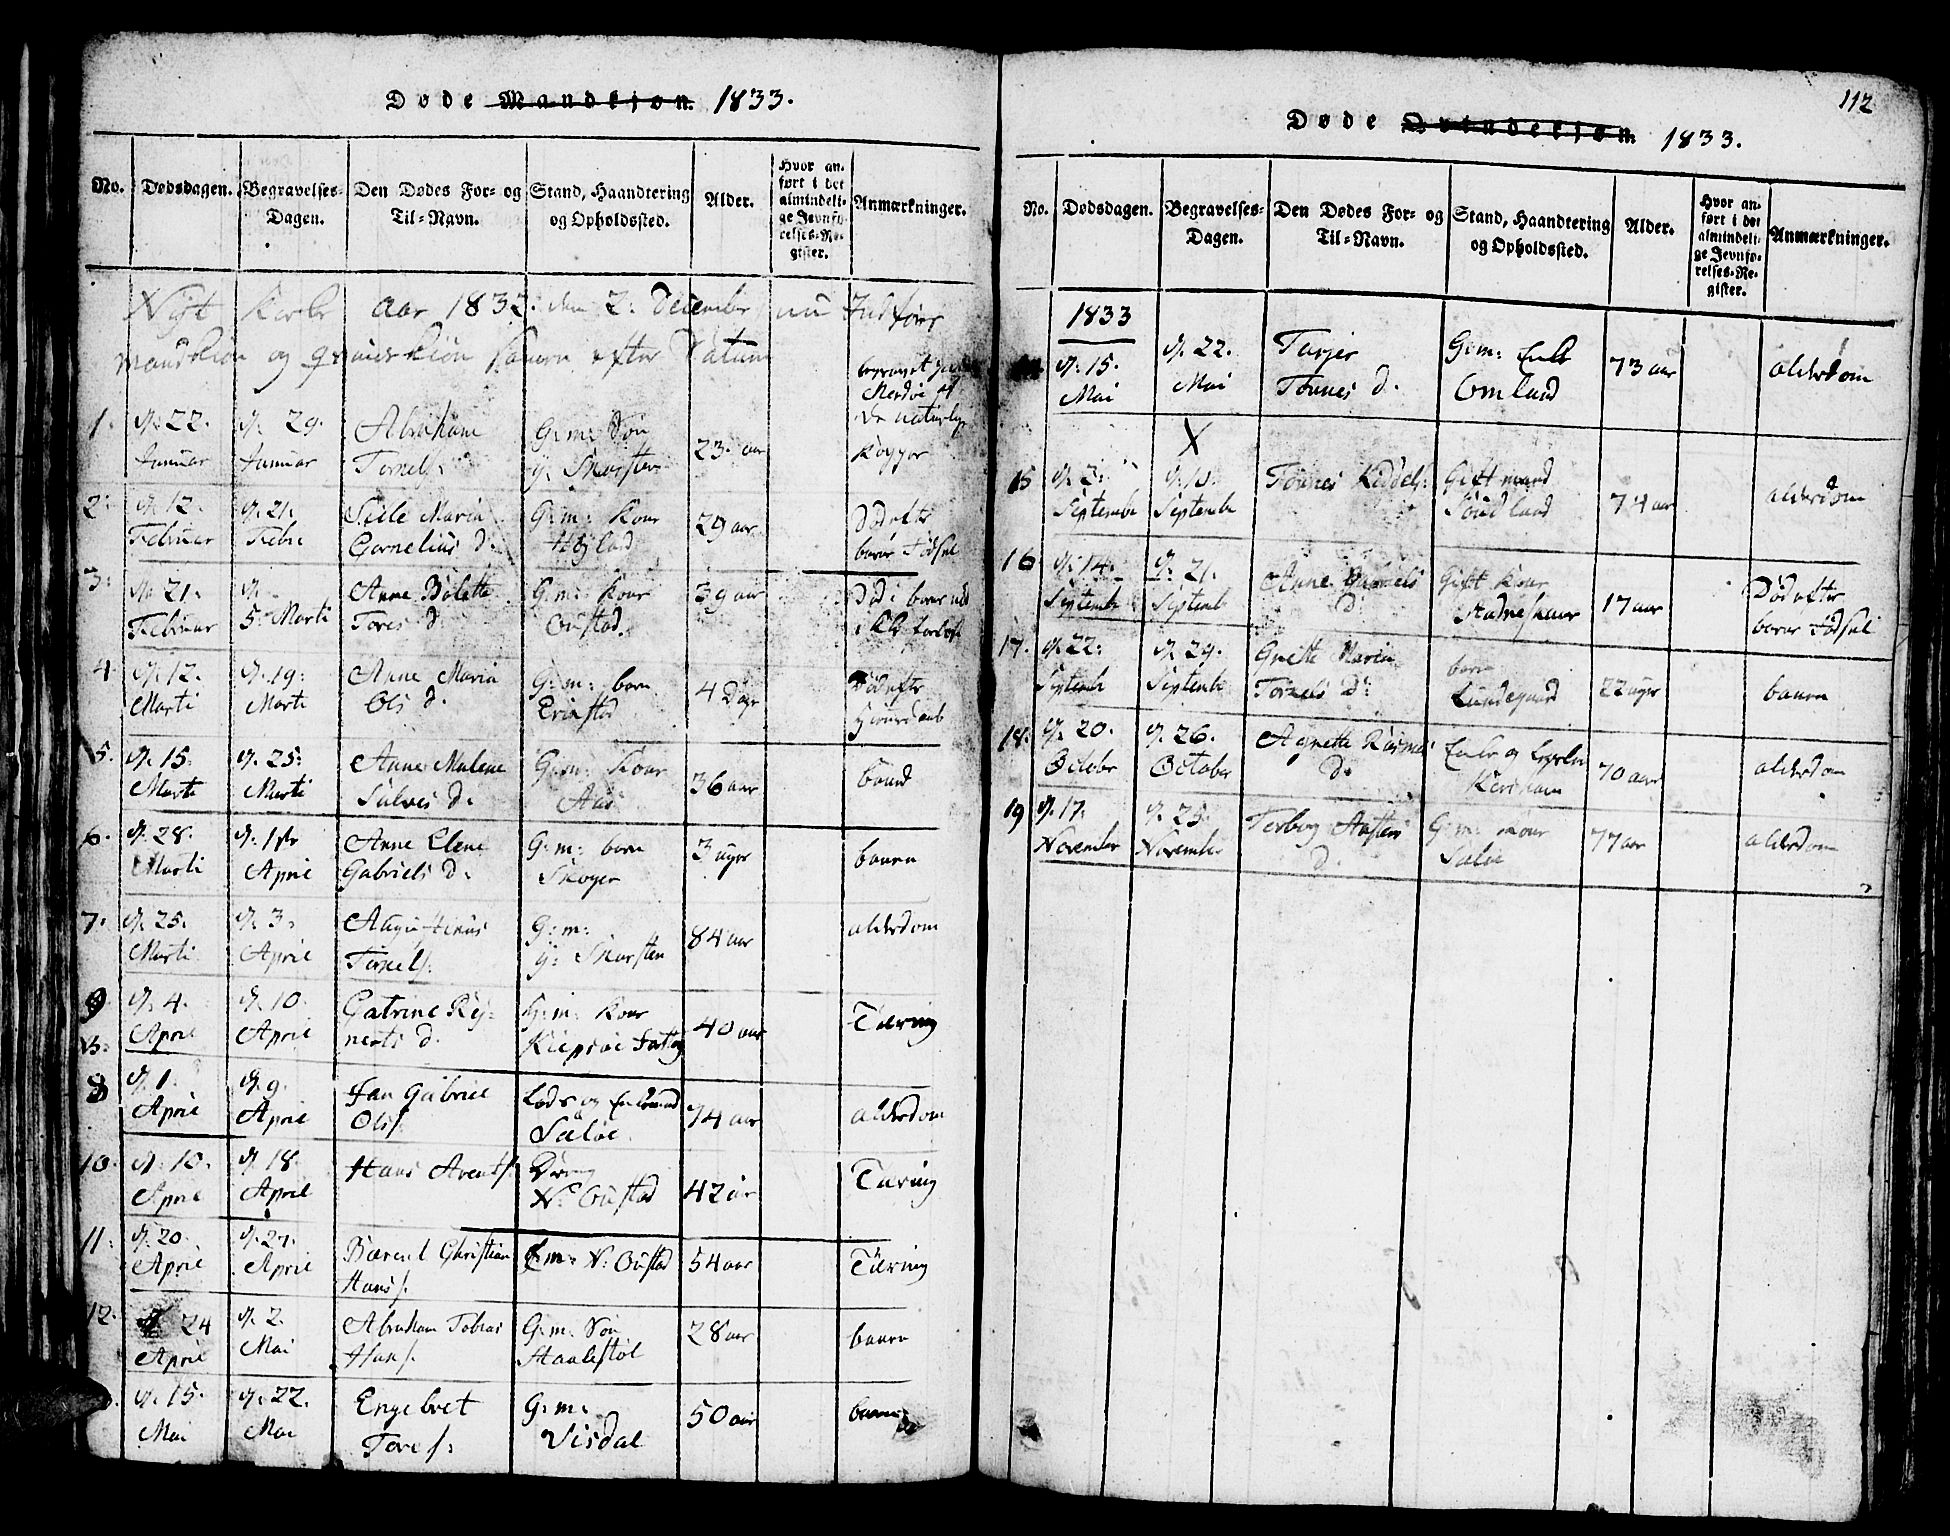 Døde Mandkjøn. 1833.
No.
Dødsdagen.
Begravelses-
Dagen.
Den Dødes For- og
Til-Navn.
Stand, Haandtering
og Opholdssted.
Alder.
Hvor an-
ført i det
almindeli-
ge Jevnfø-
relses-Re-
gister.
Anmærkninger.
Nÿt Kirke aar 1832: den 2: December nu Indføres
mandkiøn og qvindekiøn samen efter Datum
1. d. 22. Januar d. 29. Januar Abraham Tørrels. G:m: Søn y. Skarsten 23 aar begravet
de naturlige Kopper
2: d. 12. Februar d. 21. Febr Sille Maria Cornelius d. G:m: Kone Høyland 29 aar død efter barne Fødsel
3: d. 21. Februar d. 5: Marti Anne Bolette Tores d. G:m: Kone Oustad. 39 aar Død i barnenød
4. d. 12. Marti d. 19: Marti Anne Maria Ols d. G:m: barn 4 Dage Død efter
5. d. 15. Marti d. 25: Marti Anne Malene Salves d. G:m: Kone Aas 36 aar
6. d. 28. Marti d. 1ste April Anne Elene Gabriels d. G:m: barn Skoger 3 uger
7. d. 25. Marti d. 3. April Augustinus Tørrels. G:m: y: Skarsten 84 aar alderdom
9 d. 4. April d. 10. April Catrine Reÿnerts d. G:m: Kone 40 aar Tæring
8 d. 1. April d. 9. April Jan Gabriel Ols. Lods og Enkemand Saløe 74 aar alderdom
10. d. 10. April d. 18. April Hans Arents. Dreng N: Oustad 42 aar Tæring
11. d. 20. April d. 27. April Bærent Christian Hans. G:m: N: Oustad 54 aar Tæring
12. d. 24 April d. 2. Mai Abraham Tobias Hans. G:m: Søn Staalestøl 28 aar
d. 15. Mai d. 22. Mai Engebret Tores: G:m: Visdal 50 aar
112
Døde Qvindekjøn. 1833.
No.
Dødsdagen.
Begravelses-
Dagen.
Den Dødes For- og
Til-Navn.
Stand, Haandtering
og Opholdssted.
Alder.
Hvor an-
ført i det
almindeli-
ge Jevnfø-
relses-Re-
gister.
Anmærkninger.
1833
d. 15. Mai d. 22. Mai Tarjer Tønnes d. G:m: Enke Omland 73 aar alderdom
X
15 d. 2. September d. 13. September Tønnes Kiddels: Gift mand Sundland 74 aar alderdom
16 d. 14. September d. 21. September Anne d. Gift Kone 17 aar Død efter barne Fødsel
17. d. 22: September d. 29. September Grette Maria Tørrels d: barn Lundegaard 22 uger
18. d. 20. October d. 26. October Agnette Rasmus d. Enke og 70 aar alderdom
19 d. 17. November d. 25. November Terborg Austens d. G:m: Kone Saløe 77 aar alderdom